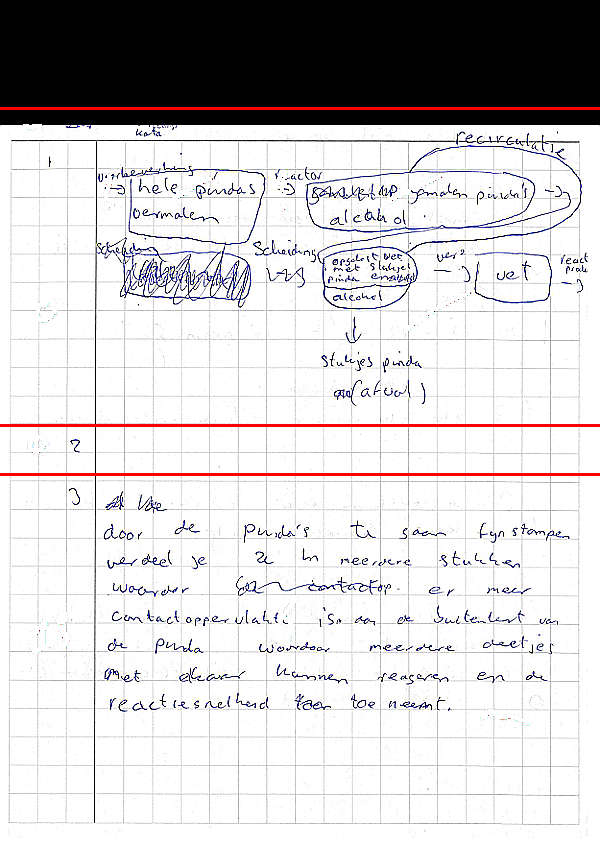 kata
recirculatie
1
voorbewerking
hele pindas
vermalen
reactor
gemalen pinda's
alcohol
Scheiding
Scheiding
opgelost vet
met stukjes
pinda
alcohol
vet
react
stukjes pinda
(afval)
2
3
door de pinda's te gaan fijnstampen
verdeel je ze in meerdere stukken
waardoor er meer
contactoppervlakte is aan de buitenkant van
de pinda waardoor meerdere deeltjes
met elkaar kunnen reageren en de
reactiesnelheid toe neemt.